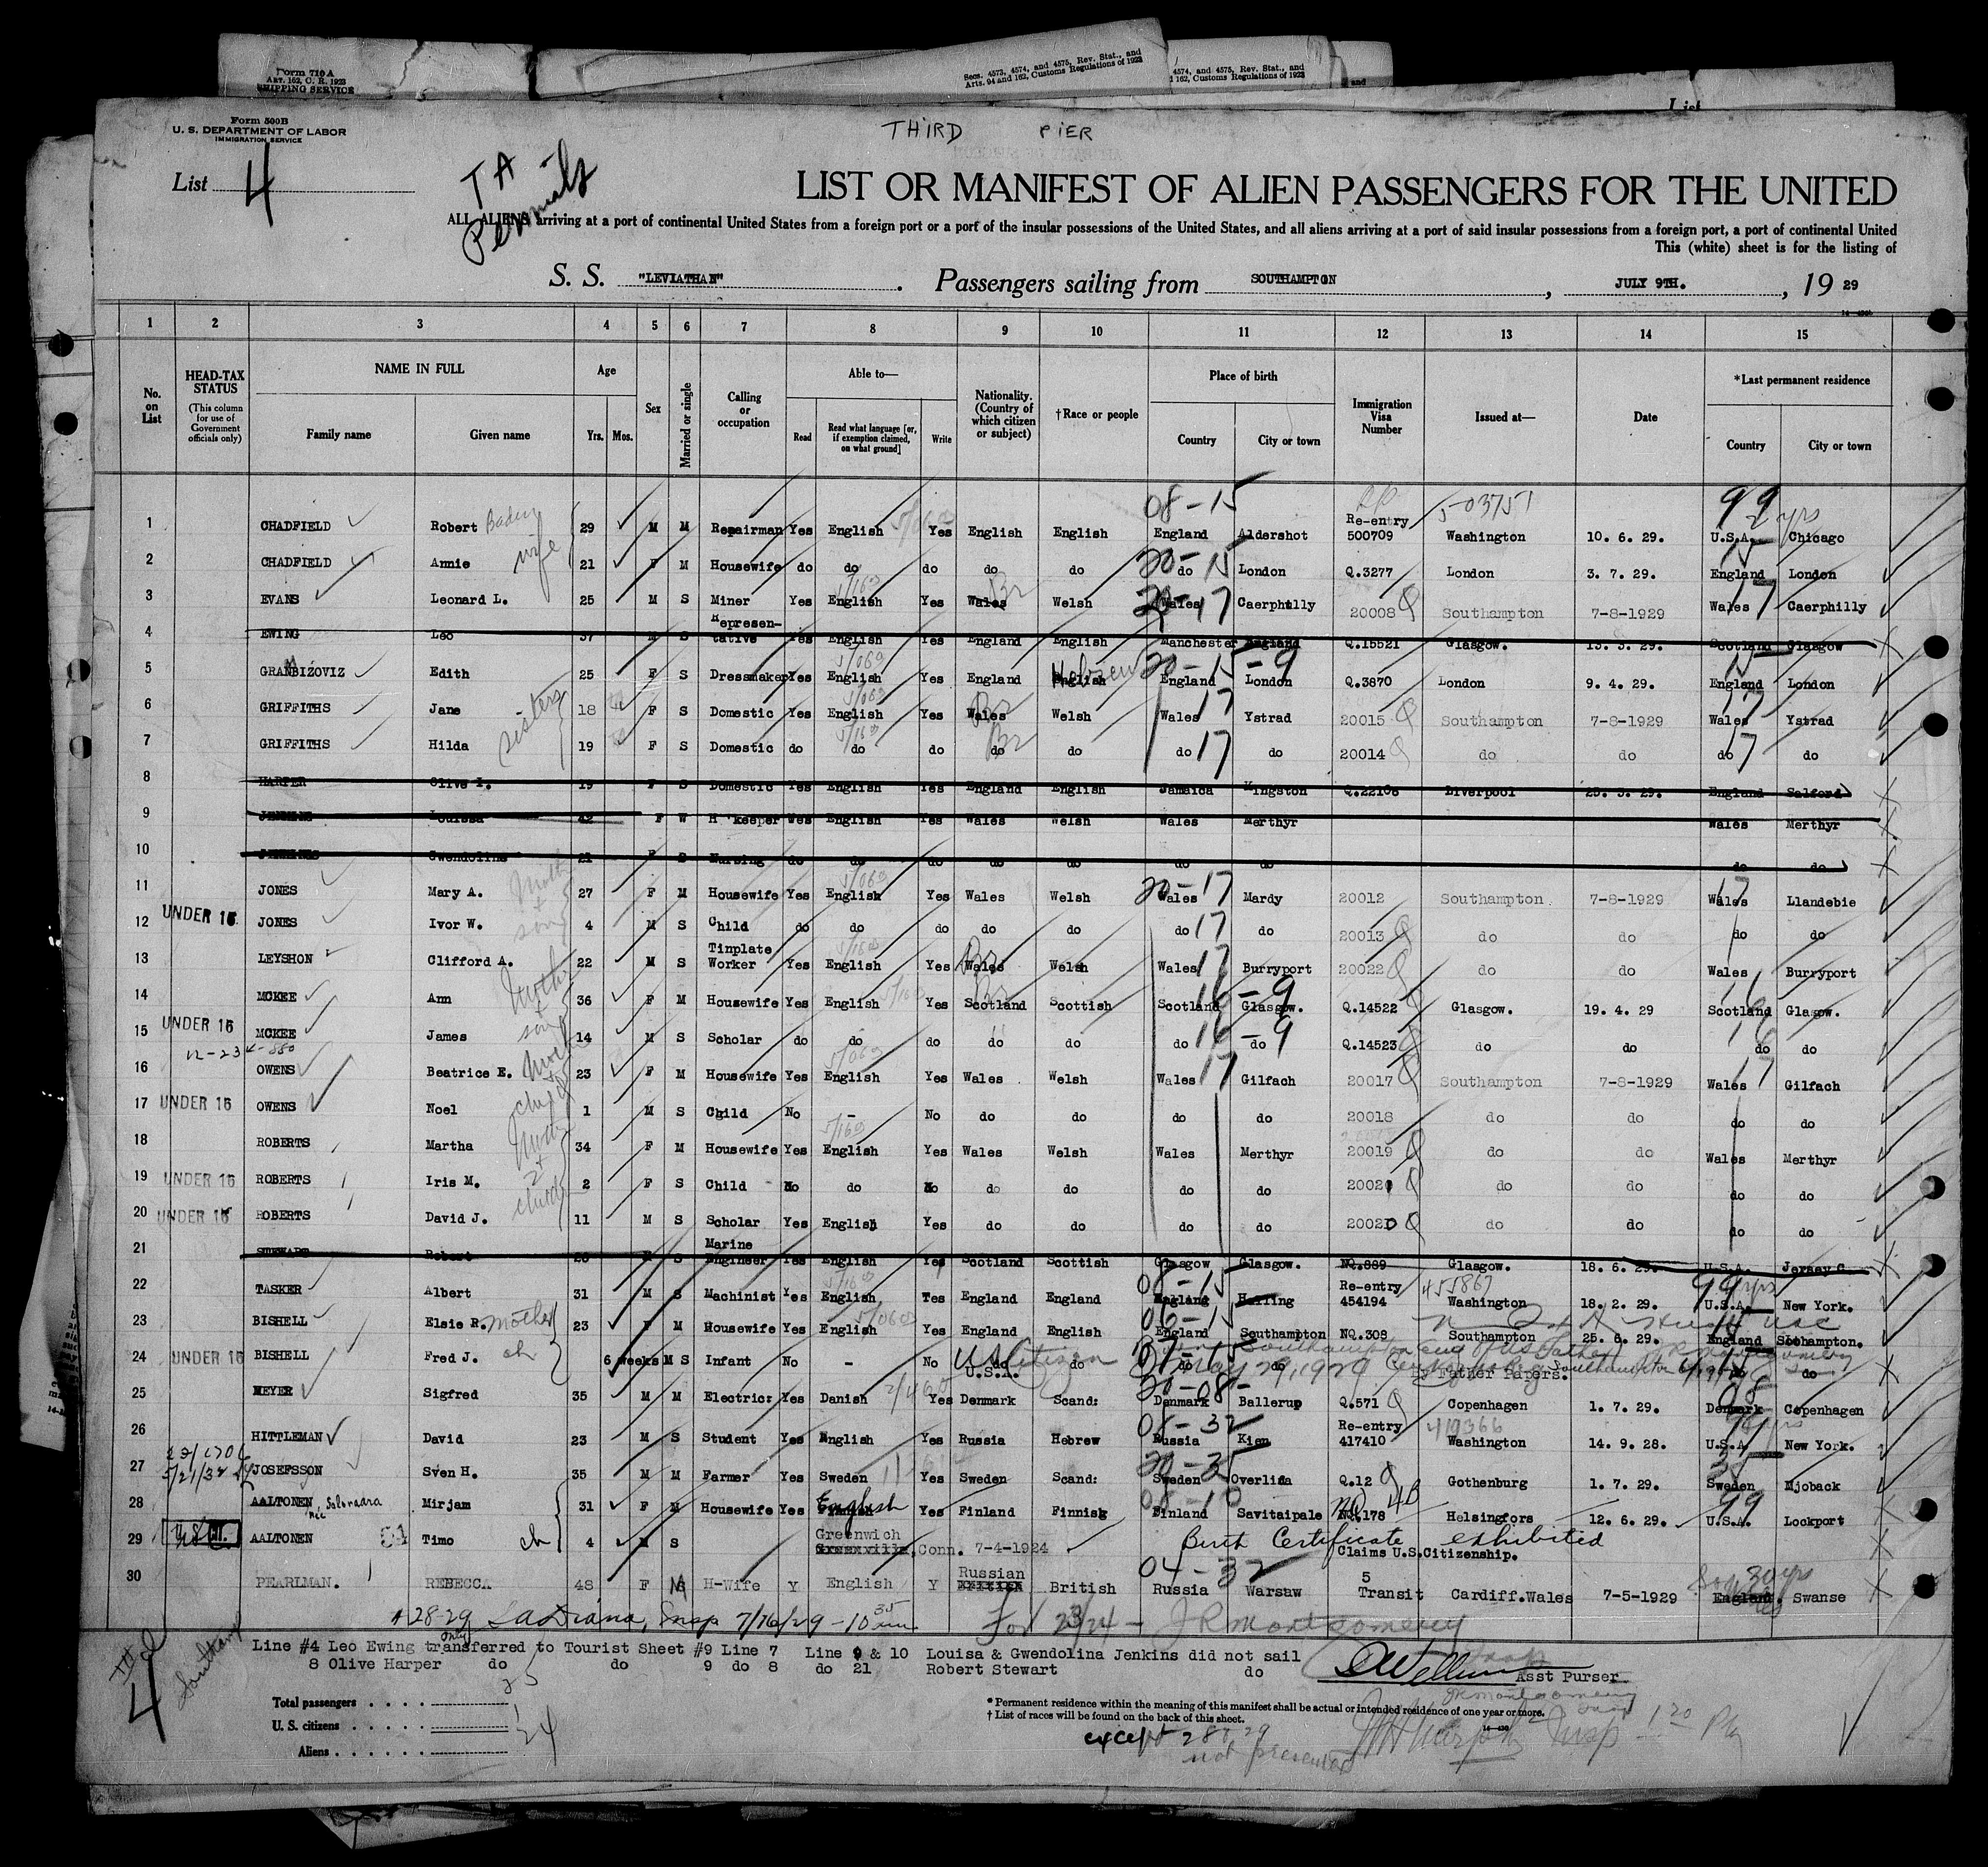 Form 710 A
ART. 162, C. R. 1923
SHIPPING SERVICE
Secs. 4573, 4574, and 4575, Rev. Stat., and
Arts. 94 and 162, Customs Regulations of 1923
4574, and 4575, Rev. Stat., and
162, Customs Regulations of 1923
and
List
Form 500B
U. S. DEPARTMENT OF LABOR
IMMIGRATION SERVICE
THIRD PIER
List 4
TA
Permits
LIST OR MANIFEST OF ALIEN PASSENGERS FOR THE UNITED
ALL ALIENS arriving at a port of continental United States from a foreign port or a port of the insular possessions of the United States, and all aliens arriving at a port of said insular possessions from a foreign port, a port of continental United
This (white) sheet is for the listing of
S. S. "LEVIATHAN" . Passengers sailing from SOUTHAMPTON , JULY 9TH. , 19 29
1 2 3 4 5 6 7 8 9 10 11 12 13 14 15
No. on List
HEAD-TAX STATUS (This column for use of Government officials only)
NAME IN FULL Family name Given name
Age Yrs. Mos.
Sex
Married or single
Calling or occupation
Able to— Read Read what language [or, if exemption claimed, on what ground] Write
Nationality. (Country of which citizen or subject)
†Race or people
Place of birth Country City or town
Immigration Visa Number
Issued at—
Date
*Last permanent residence Country City or town
08-15 503751 99 2 yrs
1 CHADFIELD Robert 29 M M Repairman Yes English Yes English English England Aldershot Re-entry 500709 Washington 10. 6. 29. U.S.A. Chicago
wife
2 CHADFIELD Annie 21 F M Housewife do do do do do 20-15 do London Q.3277 London 3. 7. 29. 15 England London
3 EVANS Leonard L. 25 M S Miner Yes English Yes Wales Br Welsh 20-17 Wales Caerphilly 20008 Q Southampton 7-8-1929 Wales 17 Caerphilly
4 EWING Leo 37 M S Representative Yes English Yes England English Manchester England Q.15521 Glasgow. 13. 3. 29. Scotland Glasgow
5 GRANBIZOVIZ Edith 25 F S Dressmaker Yes English Yes England English Hebrew 20-15-9 England London Q.3870 London 9. 4. 29. 15 England London
sisters
6 GRIFFITHS Jane 18 F S Domestic Yes English Yes Wales Br Welsh Wales 17 Ystrad 20015 Q Southampton 7-8-1929 Wales 17 Ystrad
7 GRIFFITHS Hilda 19 F S Domestic do do do do Br do do 17 do 20014 Q do do do 17 do
8 HARPER Olive I. 19 F S Domestic Yes English Yes England English Jamaica Kingston Q.22106 Liverpool 25. 3. 29. England Salford
9 JENKINS Louisa 42 F W H'keeper Yes English Yes Wales Welsh Wales Merthyr Wales Merthyr
10 JENKINS Gwendoline 21 F S Nursing do do do do do do do do do
Mother + son
11 JONES Mary A. 27 F M Housewife Yes English Yes Wales Welsh 20-17 Wales Mardy 20012 Southampton 7-8-1929 17 Wales Llandebie
12 UNDER 16 JONES Ivor W. 4 M S Child do do do do do do 17 do 20013 Q do do do do
13 LEYSHON Clifford A. 22 M S Tinplate Worker Yes English Yes Wales Br Welsh Wales 17 Burryport 20022 Q do do Wales Burryport
Mother + son
14 MCKEE Ann 36 F M Housewife Yes English Yes Scotland Br Scottish 16-9 Scotland Glasgow. Q.14522 Glasgow. 19. 4. 29 16 Scotland Glasgow.
15 UNDER 16 MCKEE James 14 M S Scholar do do do do do do 16-9 do Q.14523 do do 16 do do
Mother + child
16 OWENS Beatrice E. 23 F M Housewife Yes English Yes Wales Welsh Wales 17 Gilfach 20017 Q Southampton 7-8-1929 Wales 17 Gilfach
17 UNDER 16 OWENS Noel 1 M S Child No - No do do do do 20018 do do do do
Mother + 2 child
18 ROBERTS Martha 34 F M Housewife Yes English Yes Wales Welsh Wales Merthyr 20019 Q do do Wales Merthyr
19 UNDER 16 ROBERTS Iris M. 2 F S Child No do No do do do do Q do do do do
20 UNDER 16 ROBERTS David J. 11 M S Scholar Yes English Yes do do do do Q do do do do
21 STEWART Robert 26 M S Marine Engineer Yes English Yes Scotland Scottish Glasgow Glasgow. NQ.889 Glasgow. 18. 6. 29. U.S.A. Jersey C.
22 TASKER Albert 31 M S Machinist Yes English Yes England England 08-15 England Re-entry 454194 455867 Washington 18. 2. 29. 99 yrs U.S.A. New York.
23 BISHELL Elsie R. mother 23 F M Housewife Yes English Yes England English 06-15 England Southampton NQ.308 Southampton 25. 6. 29. England Sothampton.
24 UNDER 16 BISHELL Fred J. ch 6 weeks M S Infant No - No U.S.A. US Citizen do do do May 29, 1929 By Father Papers. do do
25 MEYER Sigfred 35 M M Electric: Yes Danish Yes Denmark Scand: 20-08- Denmark Ballerup Q.571 Q Copenhagen 1. 7. 29. 08 Denmark Copenhagen
26 HITTLEMAN David 23 M S Student Yes English Yes Russia Hebrew 01-32 Russia Kien Re-entry 417410 419366 Washington 14. 9. 28. U.S.A. New York.
27 JOSEFSSON Sven H. 35 M M Farmer Yes Sweden Yes Sweden Scand: 20-35 Sweden Overlida Q.12 Gothenburg 1. 7. 29. 35 Sweden Mjoback
28 AALTONEN Mirjam 31 F M Housewife Yes English Yes Finland Finnish 08-10 Finland Savitaipale NQ.178 4B Helsingfors 12. 6. 29. 99 U.S.A. Lockport
29 AALTONEN Timo ch 4 M S Greenwich Greenville, Conn. 7-4-1924 Birth Certificate exhibited
Claims U.S.Citizenship.
30 PEARLMAN. REBECCA 48 F M H-Wife Y English Y Russian British British 04-32 Russia Warsaw 5 Transit Cardiff.Wales 7-5-1929 30 yrs England. Swanse
#28-29 LaDiana, Insp 7/16/29 - 10 35 am For 23/24 - JRMontgomery
Line #4 Leo Ewing transferred to Tourist Sheet #9 Line 7 Line 9 & 10 Louisa & Gwendolina Jenkins did not sail
8 Olive Harper do do 9 do 8 do 21 Robert Stewart do
Asst Purser.
4
Total passengers
U. S. citizens
Aliens
24
* Permanent residence within the meaning of this manifest shall be actual or intended residence of one year or more.
† List of races will be found on the back of this sheet.
except 28 & 29
not presented